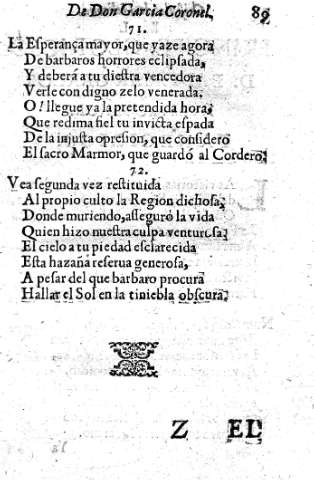 De Don Garcia Coronel. 89
71.
La Esperança mayor, que yaze agora
De barbaros horrores eclipsada,
Y deberá a tu diestra vencedora
Verse con digno zelo venerada.
O! llegue ya la pretendida hora,
Que redima fiel tu invicta espada
De la injusta opresion, que considero
El sacro Marmor, que guardó al Cordero;
72.
Vea segunda vez restituida
Al propio culto la Region dichosa,
Donde muriendo, asseguró la vida
Quien hizo nuestra culpa venturosa;
El cielo a tu piedad esclarecida
Esta hazaña reserua generosa,
A pesar del que barbaro procura
Hallar el Sol en la tiniebla obscura.
Z EL